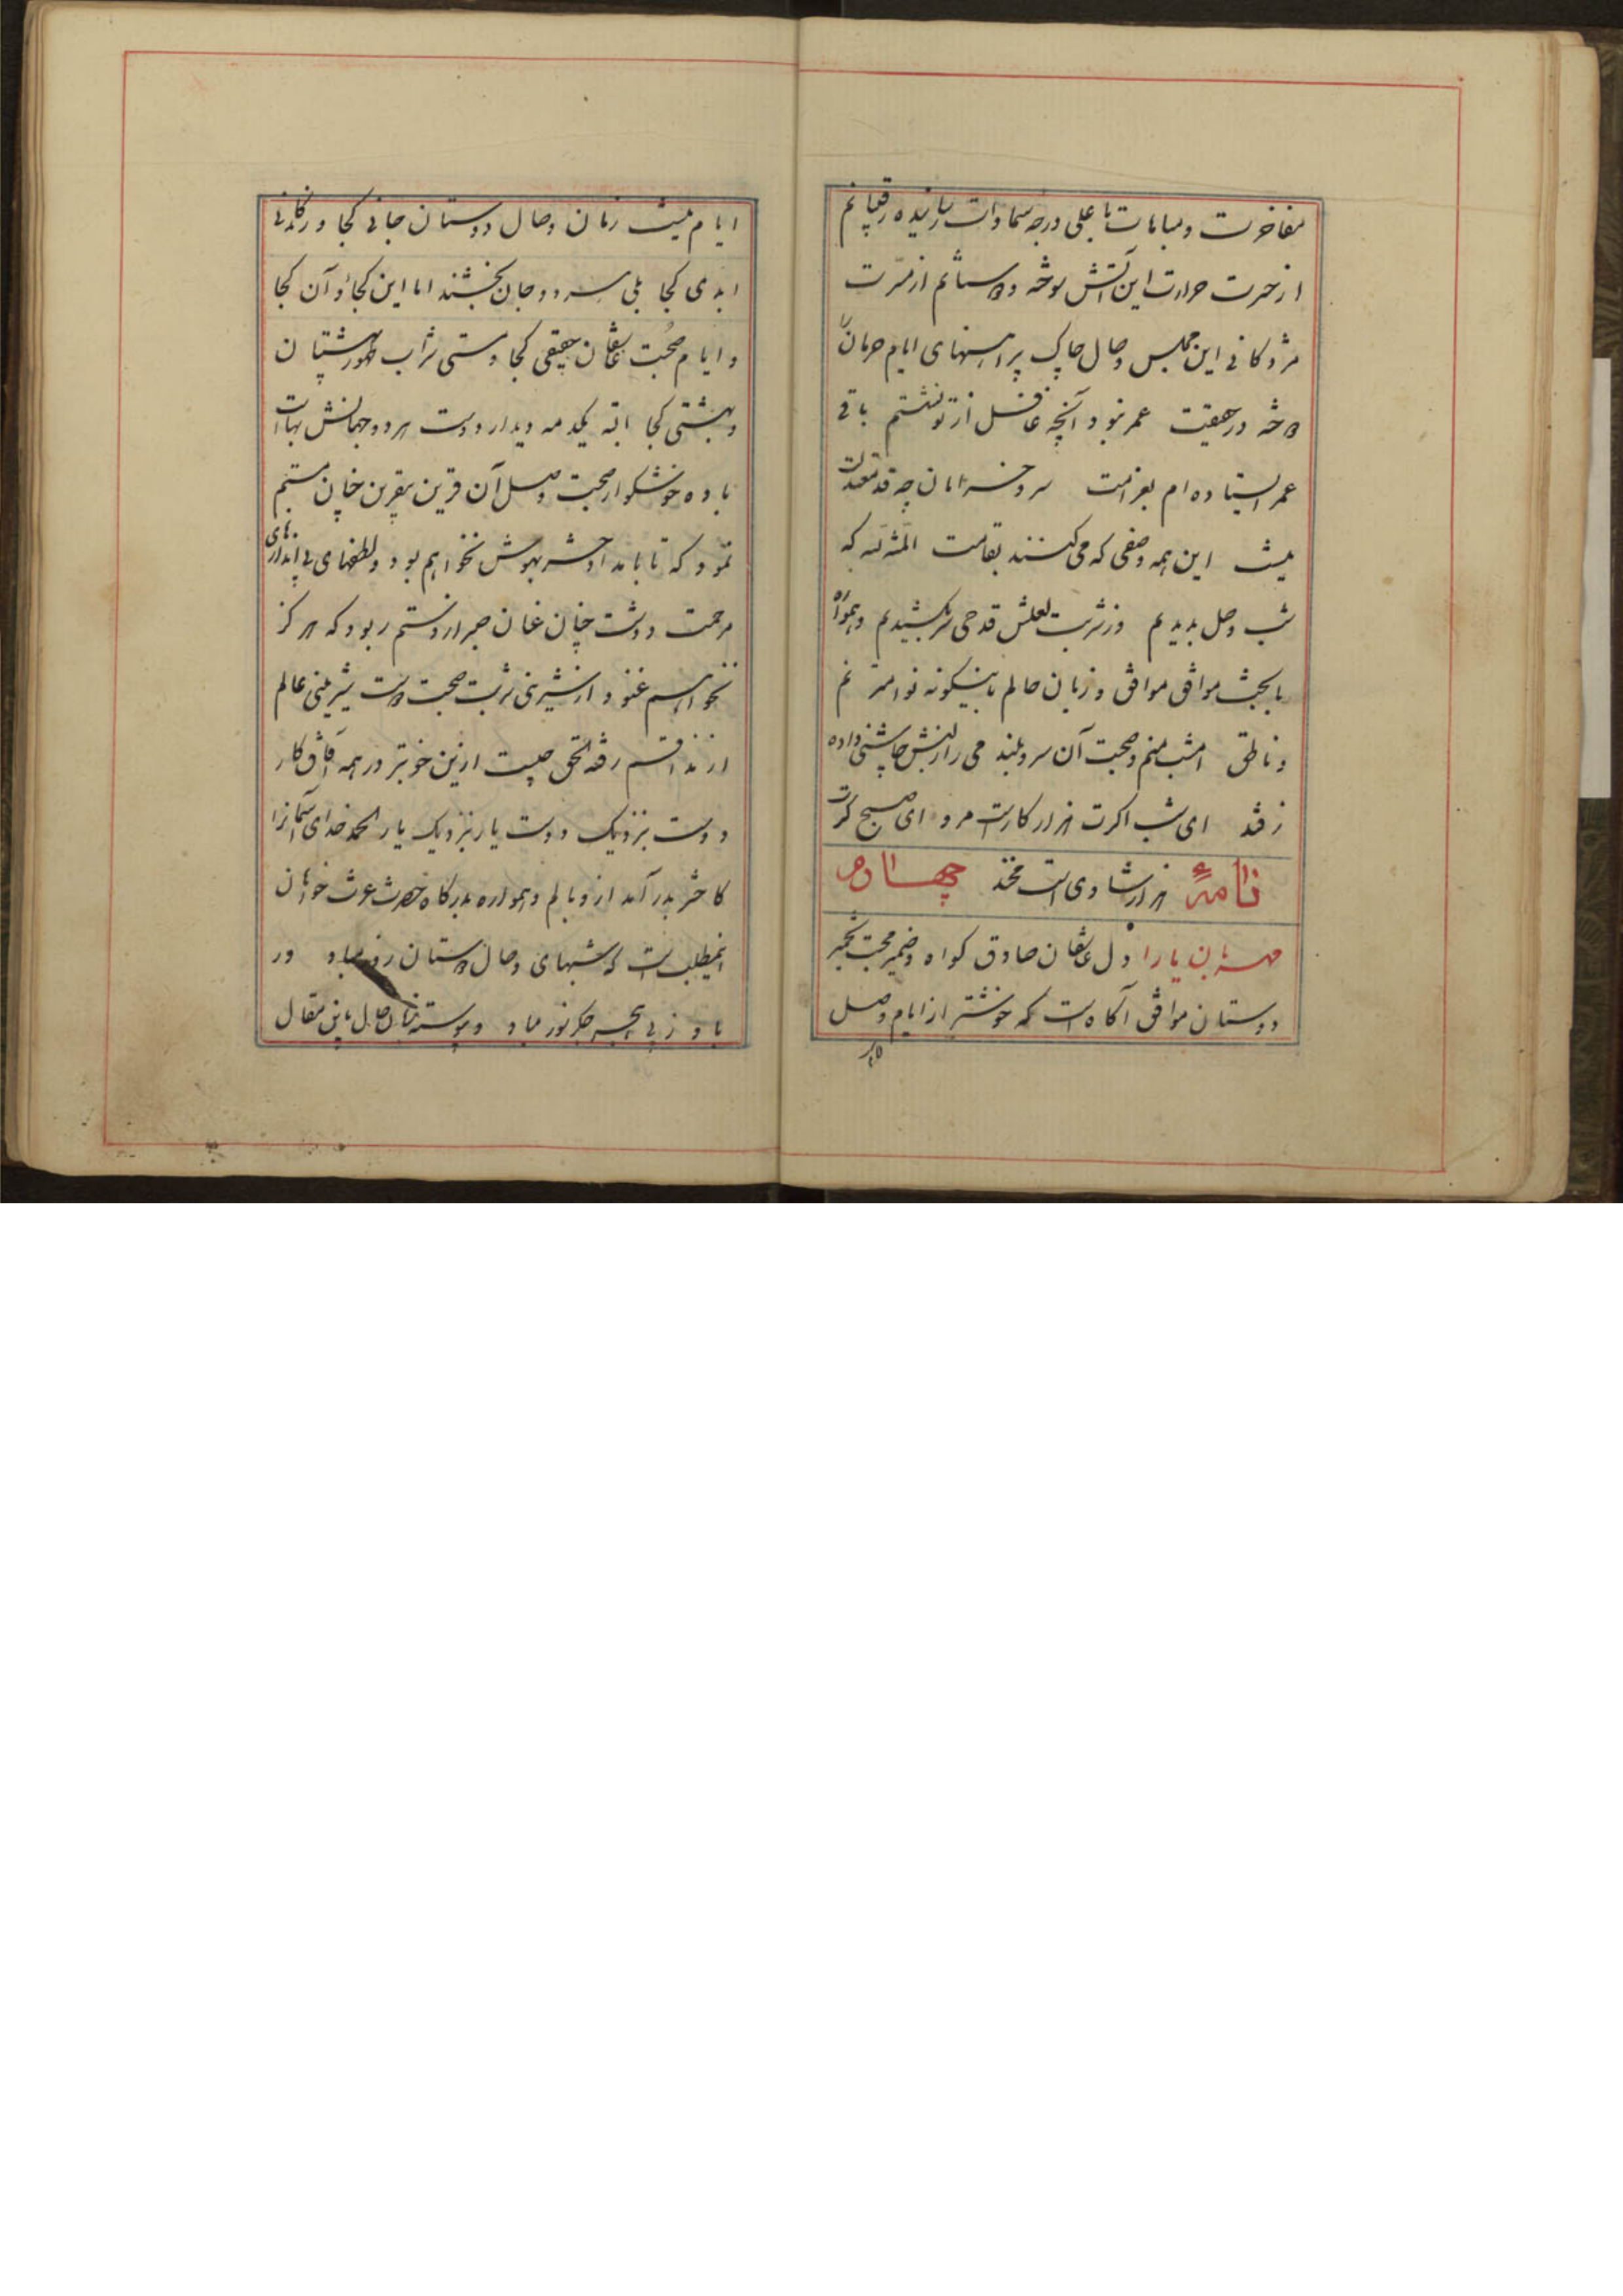 مفاخرت و مباهات باعلی درجه سماوات رسانیده رقیبانم
از حسرت حرارت این آتش سوخته و دوستانم از مسرت
مژدکانی این مجلس وصال چاک پیراهنهای ایام حرمان را
دوخته در حقیقت عمر نبود آنچه غافل از تو نشستم باقی
عمر ایستاده ام بغرامت سرو خرامان چه قد معتدلت
نیست این همه وصفی که می کنند بقامت المنة لله که
شب وصل بدیدیم وز شربت لعلش قدحی سر بکشیدیم و همواره
با بخت موافق موافق و زبان حالم باینگونه نوا مترنم
و ناطق امشب منم و صحبت آن سرو بلند می را از لبش چاشنی داده
ز قند ای شب اکرت هزار کارست مرو ای صبح کرت
هزار شادی است مخند نامهٔ چهاردهم
مهربان یارا دل عاشقان صادق کواه و ضمیر محبت تخمیر
دوستان موافق آکاه است که خوشتر از ایام وصل
ایام نیست زمان وصال دوستان جانی کجا و زندکانی
ابدی کجا بلی هر دو جان بخشند اما این کجا و آن کجا
و ایام صحبت عاشقان حقیقی کجا و مستی شراب طهور بهشتیان
بهشتی کجا البته یکدمه دیدار دوست هر دو جهانش بهاست
باده خوشکوار صحبت وصل آن قرین بیقرین چنان مستم
نمود که تا بامداد حشر بهوش نخواهم بود و لطفهای بی اندازهای
مرحمت دوست چنان عنان صبر از دستم ربود که هرکز
نخواهم غنود از شیرینی شربت صحبت دوست شیرینی عالم
از مذاقم رفته الحق چیست ازین خوبتر در همه آفاق کار
دوست بنزدیک دوست یار بنزدیک یار الحمد خدای آسمانرا
کاختر بدر آمد از وبالم و همواره بدرکاه حضرت عزت خواهان
اینمطلب است که شبهای وصال دوستان روز مباد ور
باد ز بی هجر جکرسوز مباد و پیوسته زبان حال باین مقال